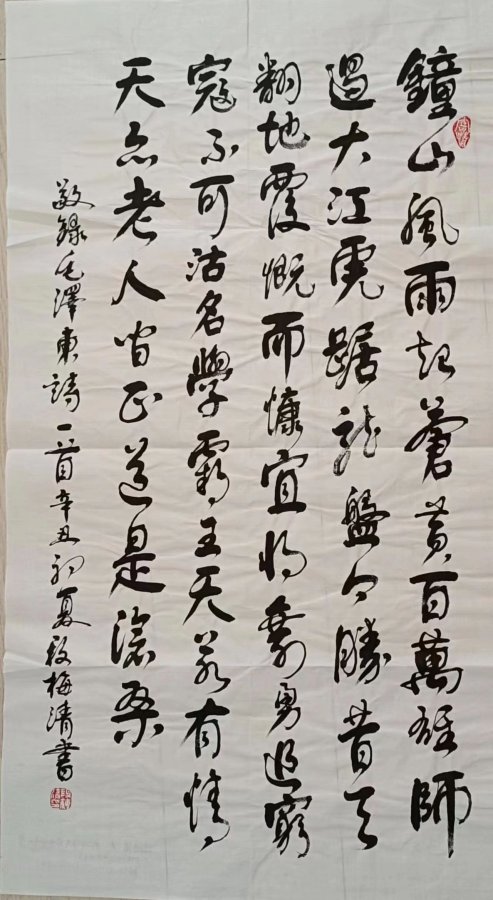 鐘山風雨起蒼黃百萬雄師
過大江虎踞龍盤今勝昔天
翻地覆慨而慷宜將剩勇追窮
寇不可沽名學霸王天若有情
天亦老人間正道是滄桑
敬錄毛澤東詩一首辛丑初夏梅清書